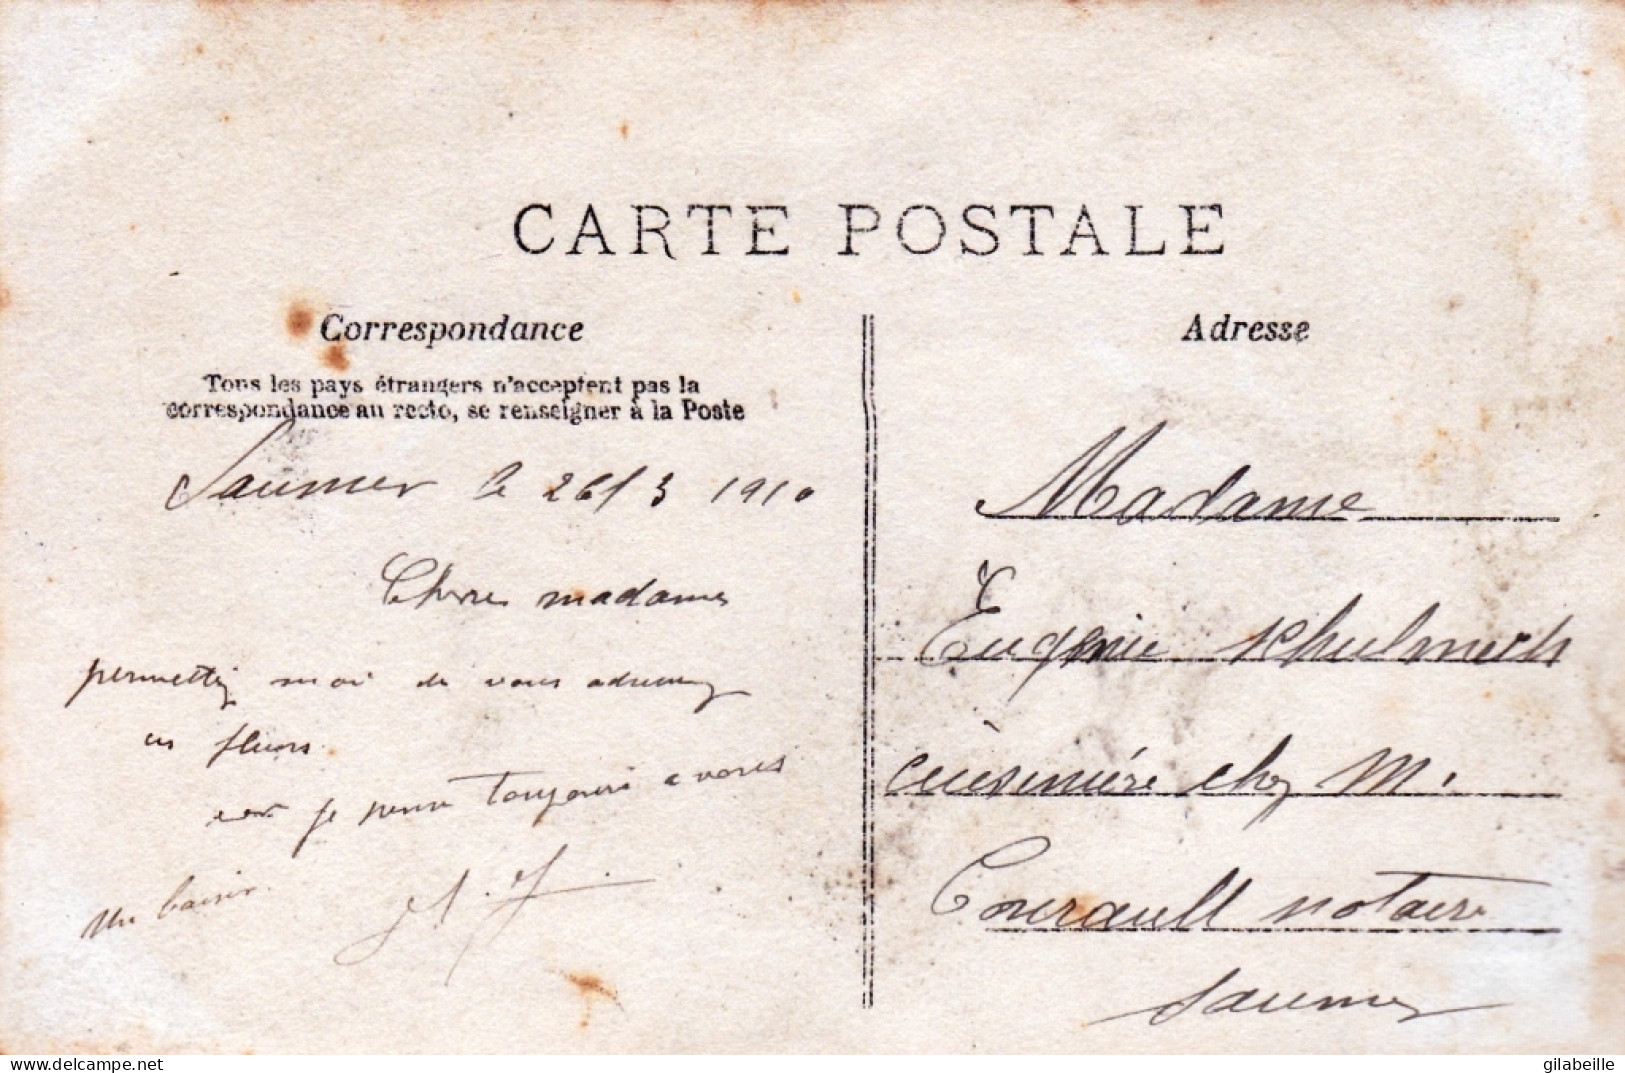 CARTE POSTALE
Correspondance
Tous les pays étrangers n'acceptent pas la
correspondance au recto, se renseigner à la Poste
Saumur le 26/3 1910
Chere madame
permettez moi de vous adresser
ces fleurs
car je pense toujours a vous
Un baiser
Adresse
Madame
Eugenie
cuisinière chez M.
notaire
Saumur
delcampe.net
gilabeille